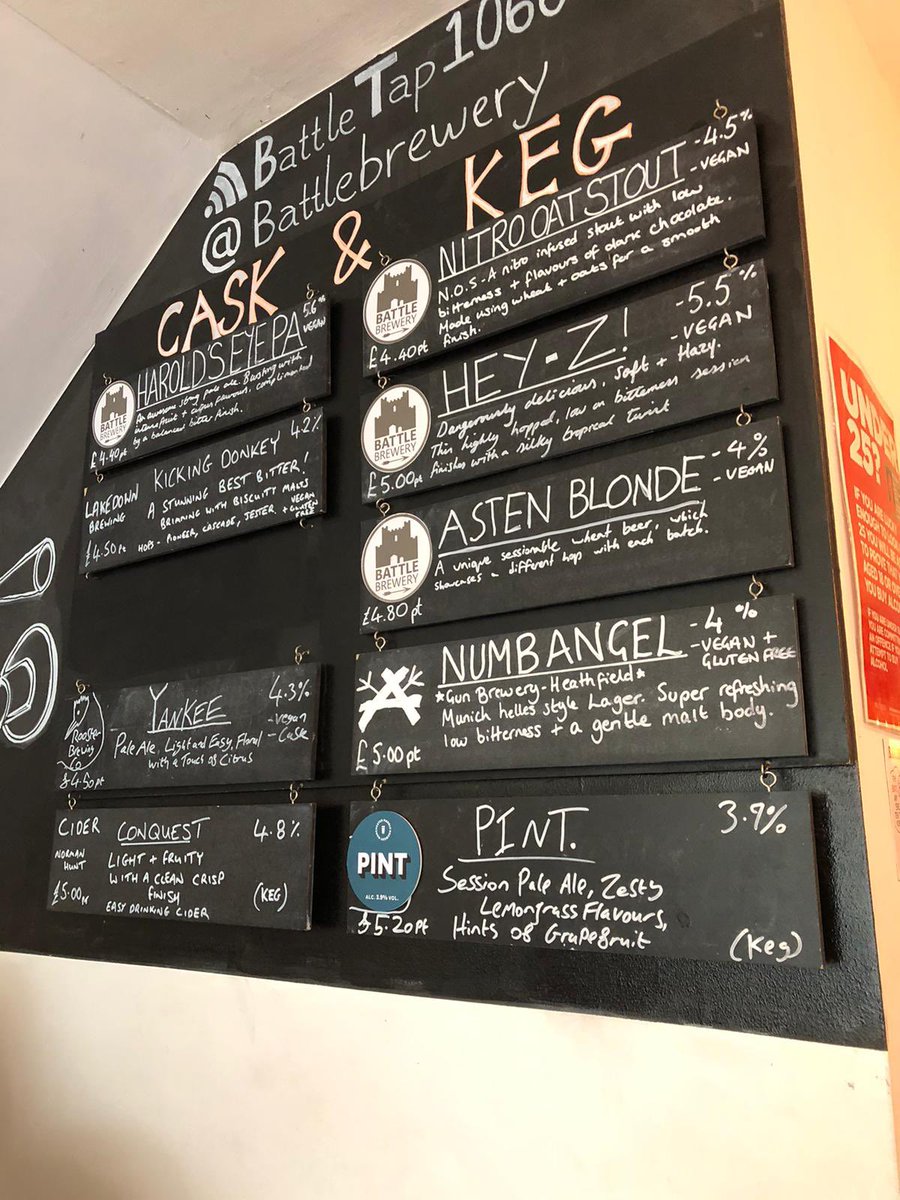 Battle Tap 1066
@Battlebrewery
CASK & KEG
HAROLD'S EYE PA
5.6%
VEGAN
An awesome strong pale ale. Bursting with
citrus flavours, complimented
by a balanced bitter finish.
BATTLE
BREWERY
£4.40pt
LAKEDOWN
BREWING
£4.50pt
KICKING DONKEY 4.2%
A STUNNING BEST BITTER!
BRIMMING WITH BISCUITT MALTS
HOPS - PIONEER, CASCADE, JESTER
VEGAN
+ GLUTEN
FREE
Rooster
Brewing
Co
£4.50pt
YANKEE 4.3%
- Vegan
- Cask
Pale Ale, Light and Easy, Floral
with a Touch of Citrus
CIDER
NORMAN
HUNT
£5.00
CONQUEST 4.8%
LIGHT + FRUITY
WITH A CLEAN CRISP
FINISH
EASY DRINKING CIDER
(KEG)
NITRO OAT STOUT
-4.5%
-VEGAN
N.O.S - A nitro infused stout with low
bitterness + flavours of dark chocolate.
Made using wheat + oats for a smooth
finish.
BATTLE
BREWERY
£4.40pt
HEY-Z!
-5.5%
-VEGAN
Dangerously delicious, Soft + Hazy.
This highly hopped, low on bitterness session
finishes with a silky tropical twist
BATTLE
BREWERY
£5.00pt
ASTEN BLONDE
-4%
-VEGAN
A unique sessionable wheat beer, which
showcases a different hop with each batch.
BATTLE
BREWERY
£4.80pt
NUMB ANGEL
-4%
-VEGAN +
GLUTEN FREE
*Gun Brewery-Heathfield*
Munich helles style Lager. Super refreshing
low bitterness + a gentle malt body.
£5.00pt
PINT
ALC. 3.9% VOL.
£5.20pt
PINT. 3.9%
Session Pale Ale, Zesty
Lemongrass Flavours,
Hints of Grapefruit
(Keg)
UNDER
25?
IF YOU ARE
ENOUGH TO
25 YOU WILL
TO PROVE
AGED 18 OR
YOU BUY